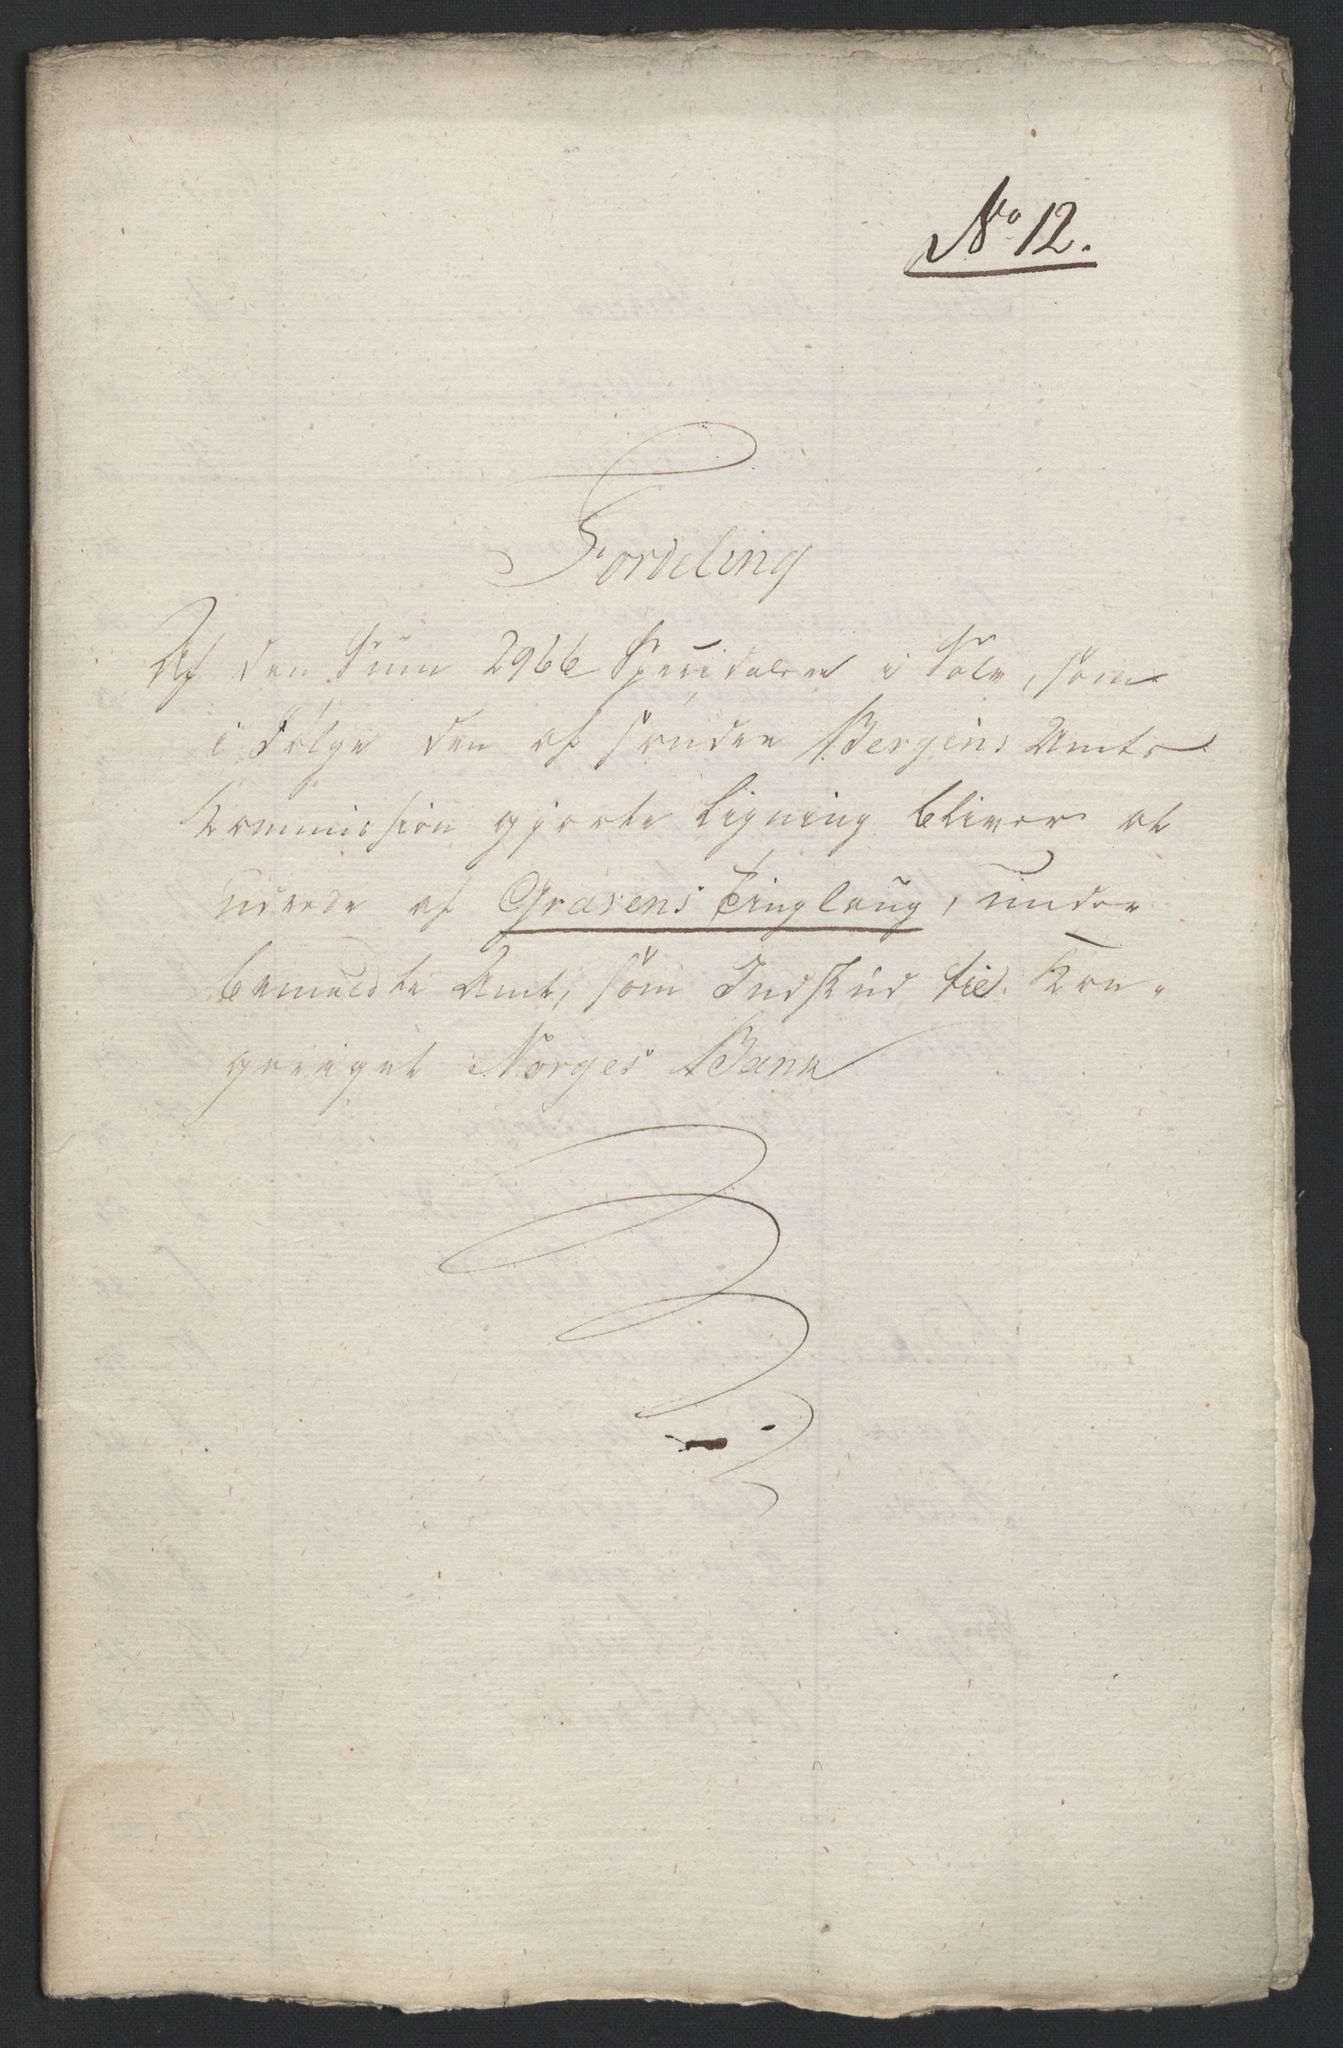 No 12.
Fordeling
Af den Sum 2966 Speciedaler i Sølv, som
i Følge den af søndre Bergens Amts
Kommission gjorte Ligning bliver at
udrede af Gravens Tinglaug, under
bemeldte Amt, som Indskud til Kon-
geriget Norges Bank